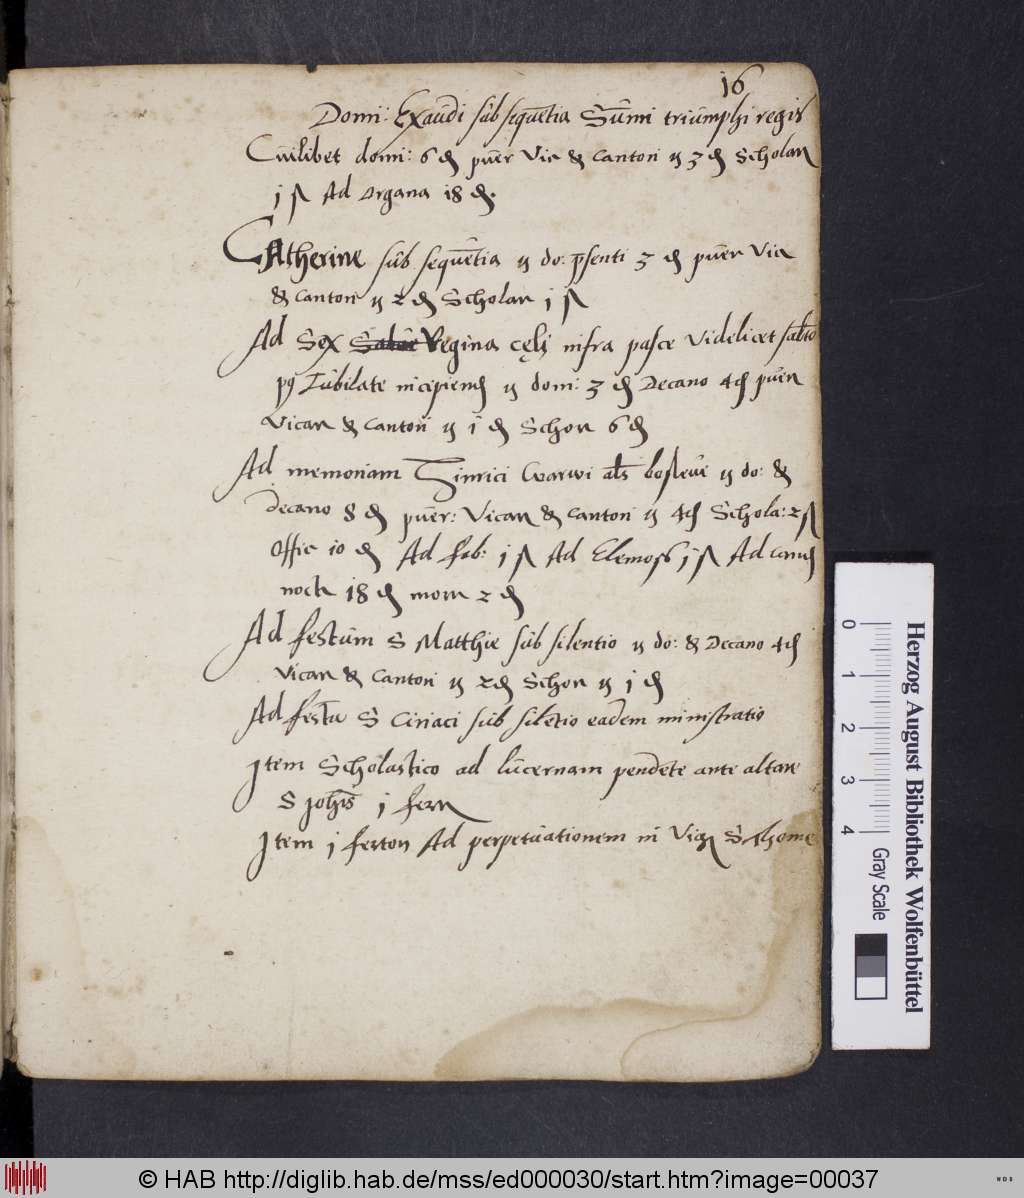 16
Domi: Exaudi sub sequētia Sūmi triumphi regis
Cuilibet domi: 6 ₰ puer Vic & Cantori ij 3 ₰ Scholar
j ß Ad Organa 18 ₰.
CAtherine sub sequētia ij do: p̄senti 3 ₰ puer Vic
& Cantori ij 2 ₰ Scholar j ß
Ad Sex Regina cęli infra pasce Videlicet
Jubilate incipiend ij domi: 3 ₰ Decano 4 ₰ puer
Vicar & Cantori ij 1 ₰ Schor 6 ₰
Ad memoriam Hinrici Warwi al̄s ij do: &
Decano 8 ₰ puer: Vicar & Cantori ij 4 ₰ Schola: 2 ß
Offic 10 ₰ Ad fab: j ß Ad Elemos j ß Ad
18 ₰ 2 ₰
Ad festum S Matthie sub silentio ij do: & Decano 4 ₰
Vicar & Cantori ij 2 ₰ Schor ij j ₰
Ad festū S Ciriaci sub silētio eadem ministratio
Item Scholastico ad lucernam pendēte ante altare
S Joh̄is j fert
Item j ferton Ad perpetuationem in S Thome
Herzog August Bibliothek Wolfenbüttel
0 1 2 3 4 Gray Scale
© HAB http://diglib.hab.de/mss/ed000030/start.htm?image=00037